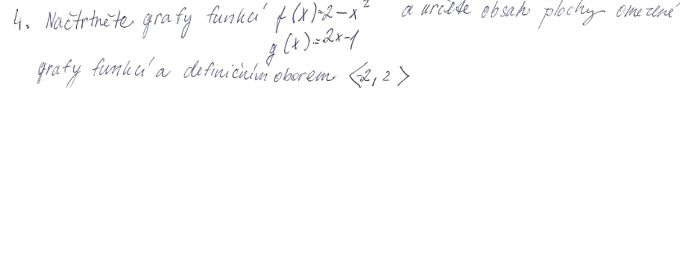 4. Načrtněte grafy funkcí f(x)=2-x² a určete obsah plochy omezené
g(x)=2x-1
grafy funkcí a definičním oborem <-2,2>